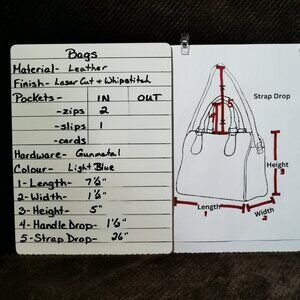 Bags
Material- Leather
Finish- Laser Cut + Whipstitch
Pockets- IN OUT
-zips 2
-slips 1
-cards
Hardware- Gunmetal
Colour- Light Blue
1- Length- 7½"
2- Width- 1½"
3- Height- 5"
4- Handle Drop- 1½"
5- Strap Drop- 26"
Strap Drop
5
4
Height
3
Length
1
Width
2